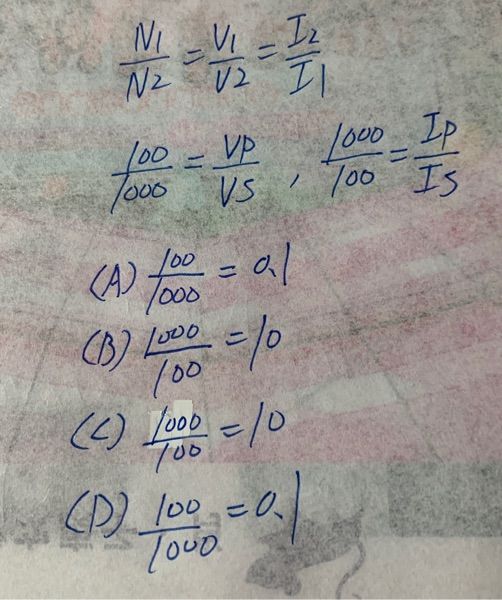 N1/N2 = V1/V2 = I2/I1
100/1000 = VP/VS , 1000/100 = IP/IS
(A) 100/1000 = 0.1
(B) 1000/100 = 10
(C) 1000/100 = 10
(D) 100/1000 = 0.1